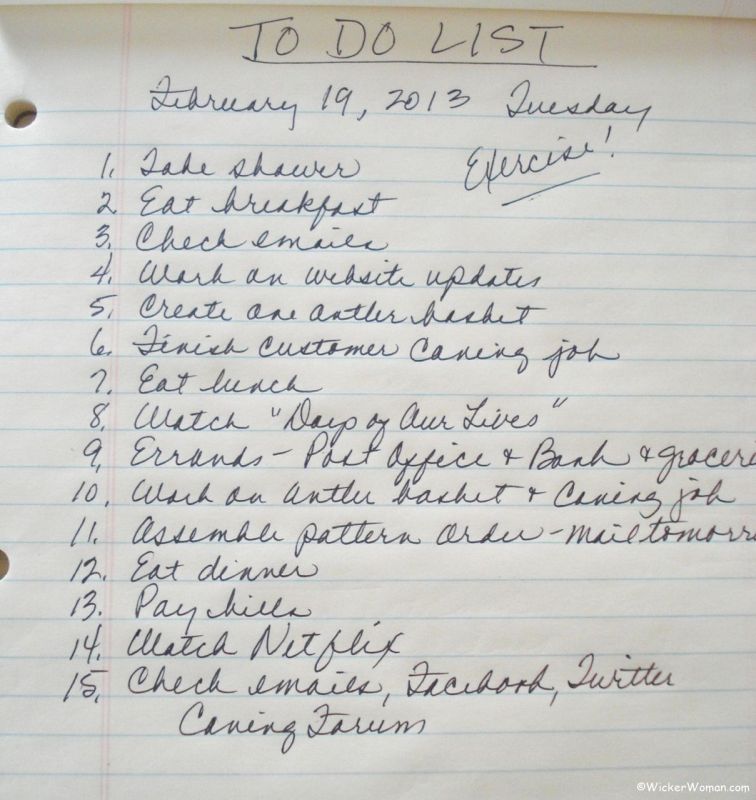 TO DO LIST
February 19, 2013 Tuesday
Exercise!
1. Take shower
2. Eat breakfast
3. Check emails
4. Work on website updates
5. Create one antler basket
6. Finish customer caning job
7. Eat lunch
8. Watch "Days of Our Lives"
9. Errands - Post Office & Bank & grocere
10. Work on antler basket & Caning job
11. Assemble pattern order - mail tomorr
12. Eat dinner
13. Pay bills
14. Watch Netflix
15. Check emails, Facebook, Twitter
Caning Forum
©WickerWoman.com